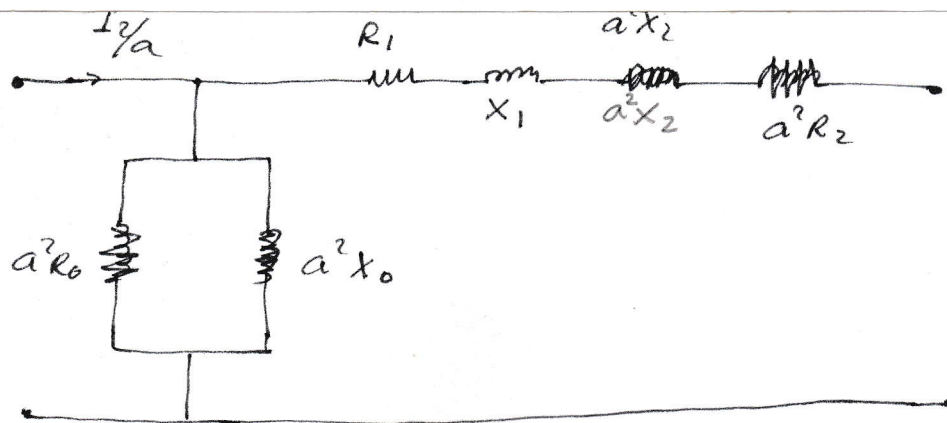 I2/a
R1
a²X2
X1
a²X2
a²R2
a²R0
a²X0